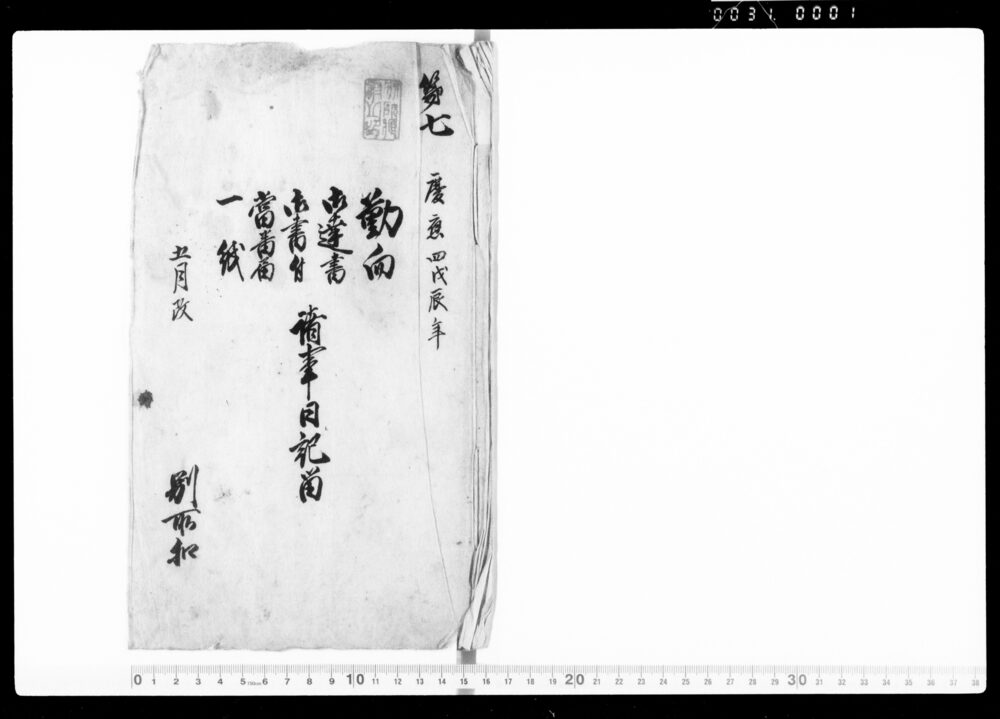 0031. 0001
第七
慶應四戊辰年
勤向
御達書
御書付
當番留
一紙
諸事日記留
五月改
別所扣
0 1 2 3 4 5 6 7 8 9 10 11 12 13 14 15 16 17 18 19 20 21 22 23 24 25 26 27 28 29 30 31 32 33 34 35 36 37 38